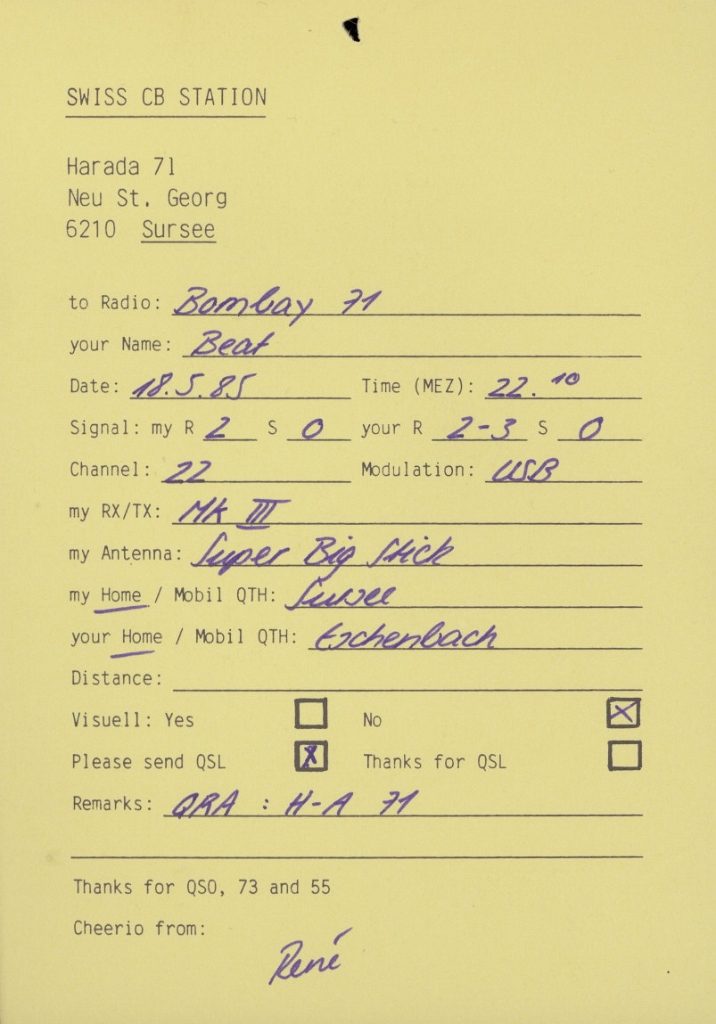 SWISS CB STATION
Harada 71
Neu St. Georg
6210 Sursee
to Radio: Bombay 71
your Name: Beat
Date: 18.5.85 Time (MEZ): 22.10
Signal: my R 2 S 0 your R 2-3 S 0
Channel: 22 Modulation: USB
my RX/TX: MK III
my Antenna: Super Big Stick
my Home / Mobil QTH: Sursee
your Home / Mobil QTH: Eschenbach
Distance:
Visuell: Yes No
Please send QSL Thanks for QSL
Remarks: QRA : H-A 71
Thanks for QSO, 73 and 55
Cheerio from:
René